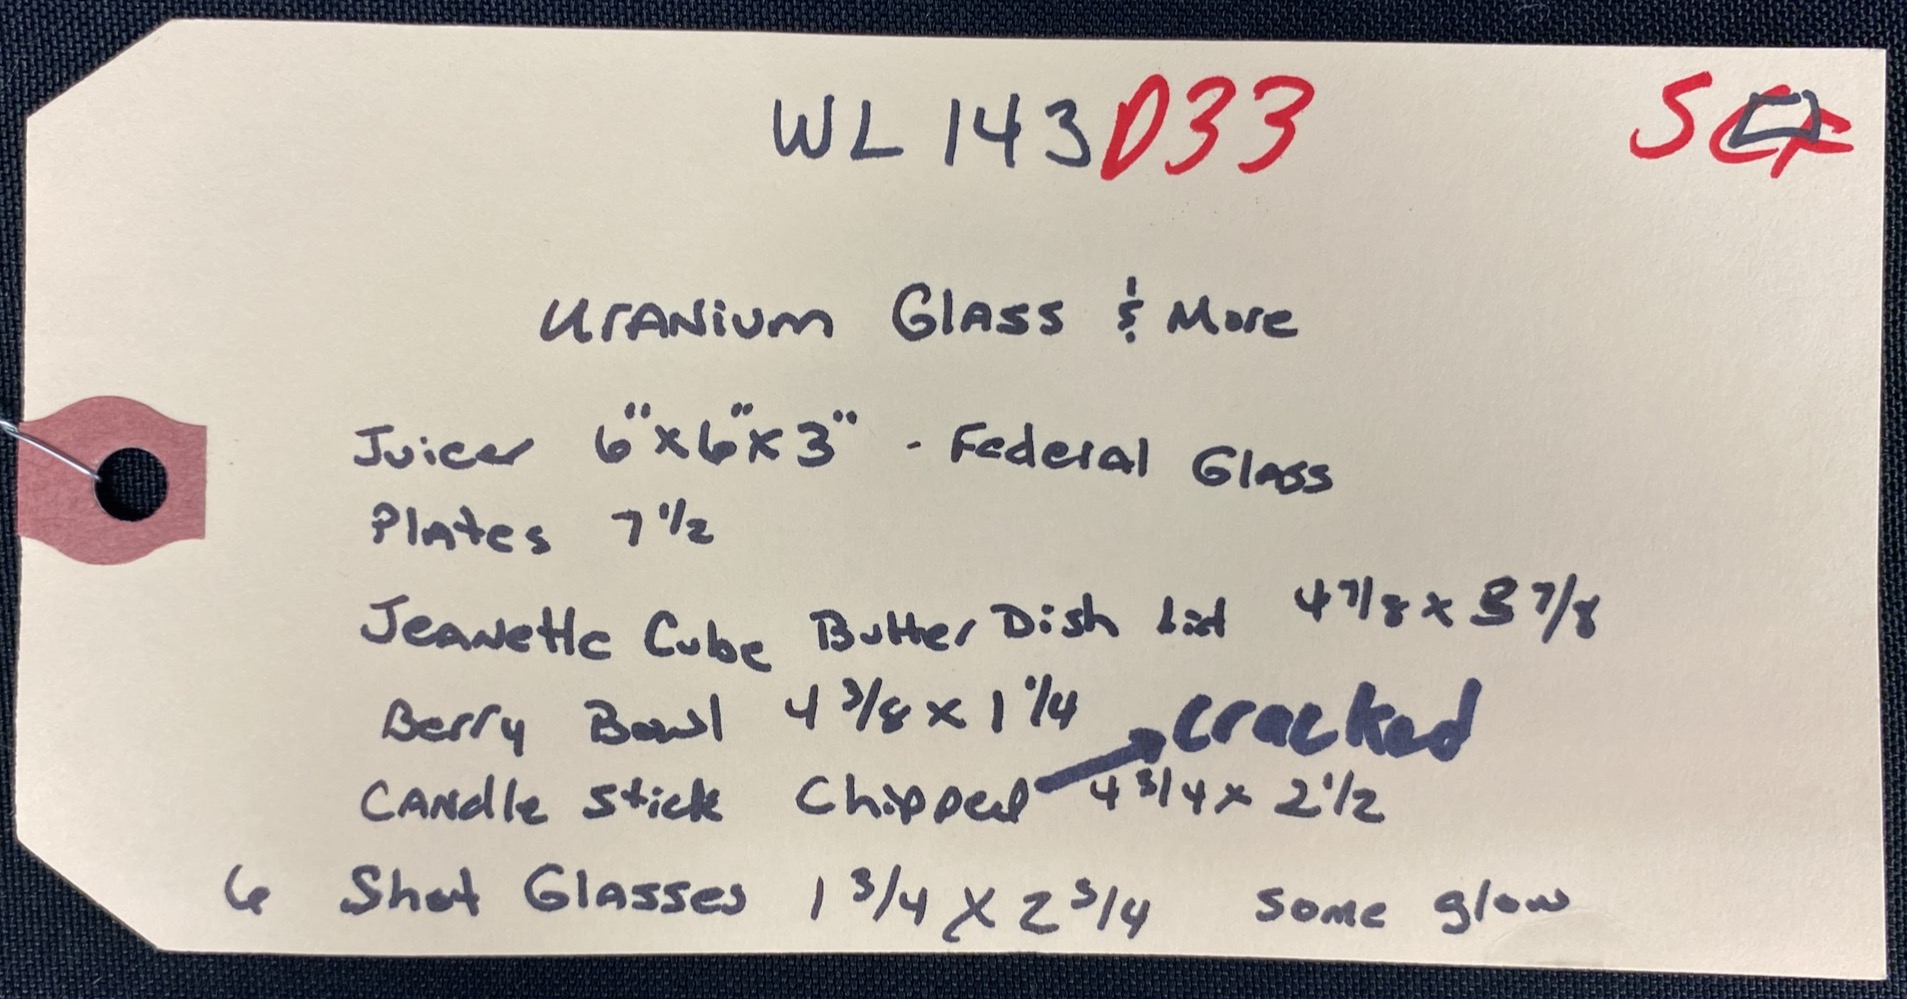 WL 143 D33
Uranium Glass & More
Juicer 6" x 6" x 3" - Federal Glass
Plates 7 1/2
Jeanette Cube Butter Dish Lid 4 7/8 x 3 7/8
Berry Bowl 4 3/8 x 1 1/4
cracked
Candle Stick Chipped 4 3/4 x 2 1/2
6 Shot Glasses 1 3/4 x 2 3/4 some glow